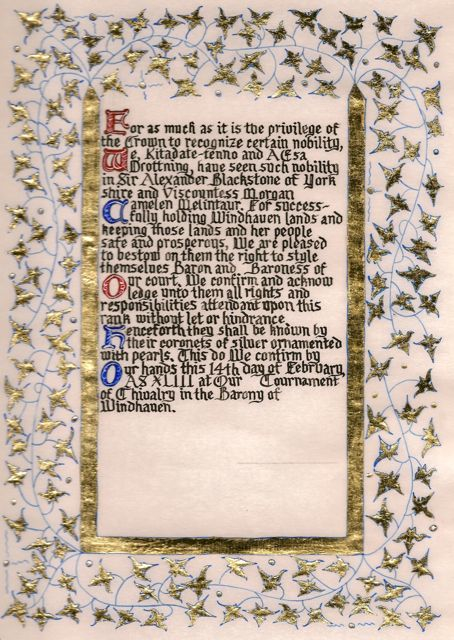 For as much as it is the privilege of
the Crown to recognize certain nobility,
We, Kitadate-tenno and AEsa
Drottning, have seen such nobility
in Sir Alexander Blackstone of York
shire and Viscountess Morgan
Camelen Melintaur. For success-
fully holding Windhaven lands and
keeping those lands and her people
safe and prosperous, We are pleased
to bestow on them the right to style
themselves Baron and Baroness of
Our court. We confirm and acknow
ledge unto them all rights and
responsibilities attendant upon this
rank without let or hindrance.
henceforth they shall be known by
their coronets of silver ornamented
with pearls. This do We confirm by
Our hands this 14th day of February,
AS XLIII at Our Tournament
of Chivalry in the Barony of
Windhaven.